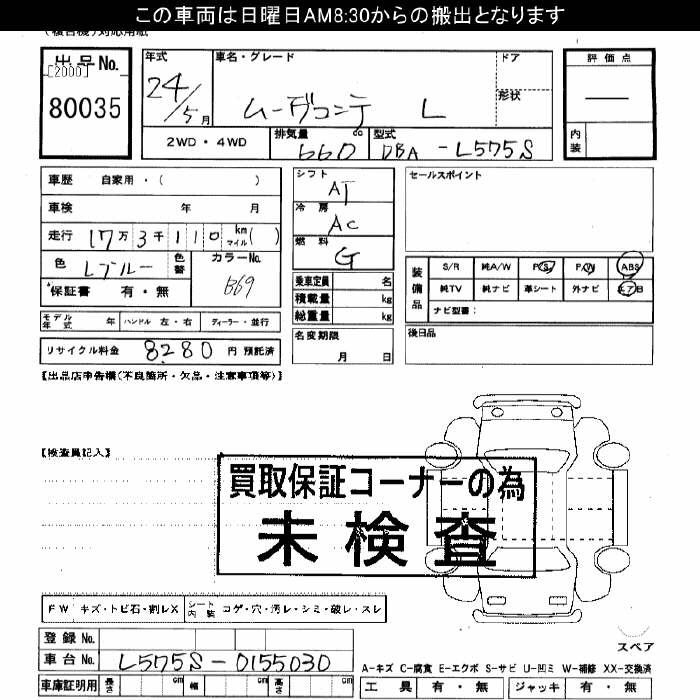 この車両は日曜日AM8:30からの搬出となります
(複合機)対応用紙
出品No.
[2000]
80035
年式
24/5月
車名・グレード
ムーヴコンテ L
ドア
形状
評価点
内装
2WD・4WD
排気量
660
cc
型式
DBA-L575S
車歴 自家用・( )
車検 年 月
走行 17万3千110 km マイル( )
色 Lブルー
色替
カラーNo.
B69
保証書 有・無
モデル年式 年 ハンドル 左・右 ディーラー・並行
リサイクル料金 8280 円 預託済
シフト
AT
冷房
AC
燃料
G
乗車定員 名
積載量 kg
総重量 kg
名変期限
月 日
セールスポイント
装備品
S/R 純A/W P/S P/W ABS
純TV 純ナビ 革シート 外ナビ エアB
ナビ型番:
後日品
【出品店申告欄(不良箇所・欠品・注意事項等)】
【検査員記入】
買取保証コーナーの為
未検査
FW キズ・トビ石・割レX シート内装 コゲ・穴・汚レ・シミ・破レ・スレ
登録No.
車台No. L575S-0155030
車庫証明用 長さ cm 幅 cm 高さ cm
スペア
A-キズ C-腐食 E-エクボ S-サビ U-凹ミ W-補修 XX-交換済
工具 有・無 ジャッキ 有・無